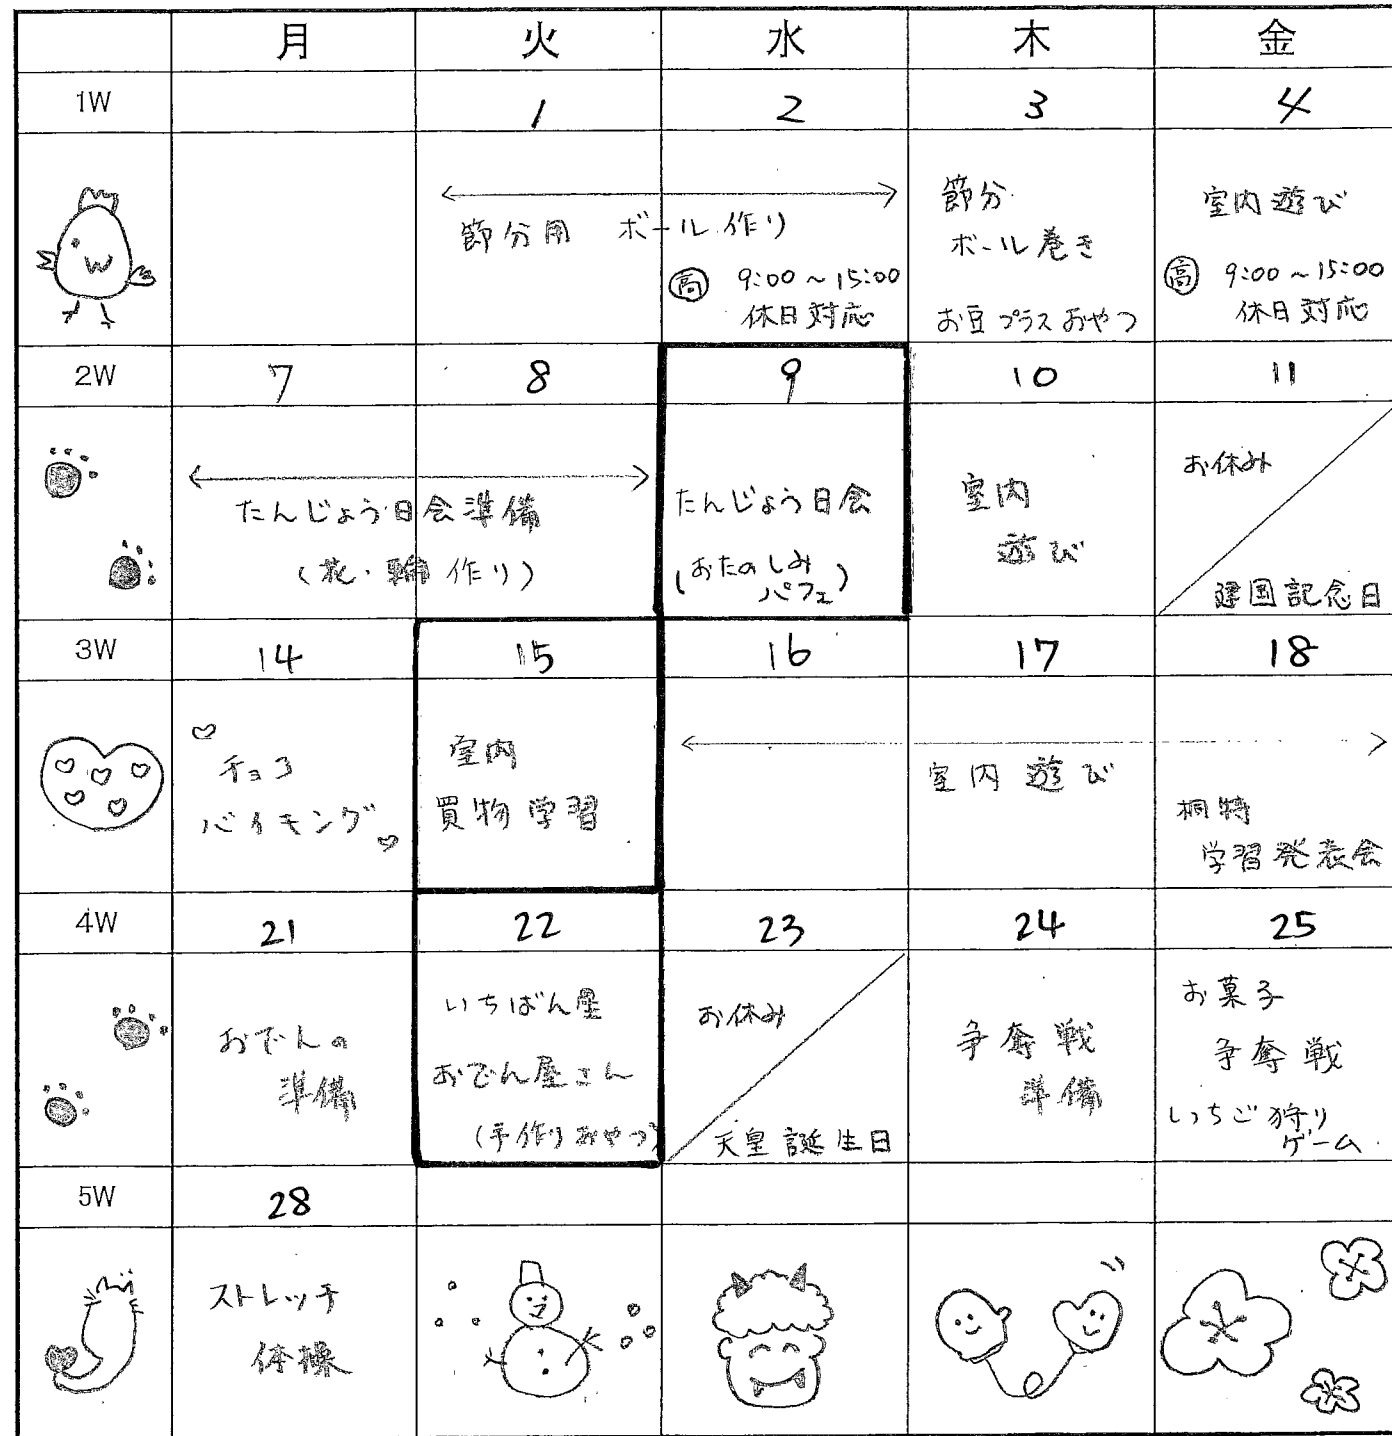 月 火 水 木 金
1W 1 2 3 4
節分用 ボール作り
高 9:00～15:00
休日対応
節分
ボール巻き
お豆プラスおやつ
室内遊び
高 9:00～15:00
休日対応
2W 7 8 9 10 11
たんじょう日会準備
(花・輪作り)
たんじょう日会
(おたのしみ
パフェ)
室内
遊び
お休み
建国記念日
3W 14 15 16 17 18
チョコ
バイキング
室内
買物学習
室内遊び
桐特
学習発表会
4W 21 22 23 24 25
おでんの
準備
いちばん屋
おでん屋さん
(手作りおやつ)
お休み
天皇誕生日
争奪戦
準備
お菓子
争奪戦
いちご狩り
ゲーム
5W 28
ストレッチ
体操